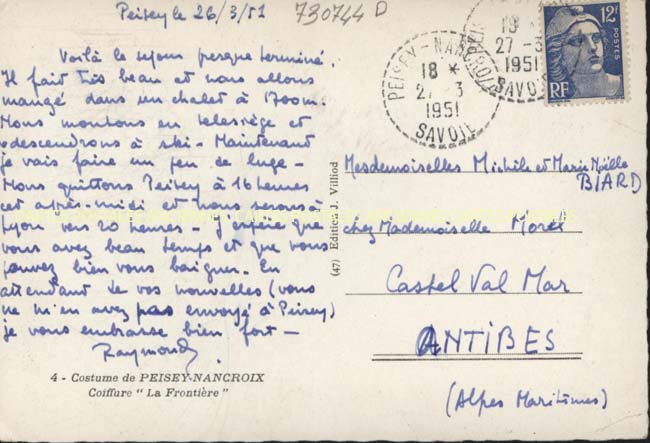 Peisey le 26/3/51
730744 D
Voilà le séjour presque terminé.
Il fait très beau et nous allons
mangé dans un chalet à 1700m.
Nous montons en télésiège et
redescendrons à ski - Maintenant
je vais faire un peu de luge -
Nous quittons Peisey à 16 heures
cet après-midi et nous serons à
Lyon vers 20 heures - J'espère que
vous avez beau temps et que vous
pouvez bien vous baigner. En
attendant de vos nouvelles (vous
ne m'en avez pas envoyé à Peisey)
je vous embrasse bien fort -
Raymond
4 - Costume de PEISEY-NANCROIX
Coiffure " La Frontière "
(47) Edition J. Villiod
PEISEY-NANCROIX
18 *
27-3
1951
SAVOIE
18
27-3
1951
SAVOIE
12F
POSTES
RF
Mesdemoiselles Michèle et Marie Noëlle
BIARD
chez Mademoiselle Morel
Castel Val Mar
ANTIBES
(Alpes Maritimes)